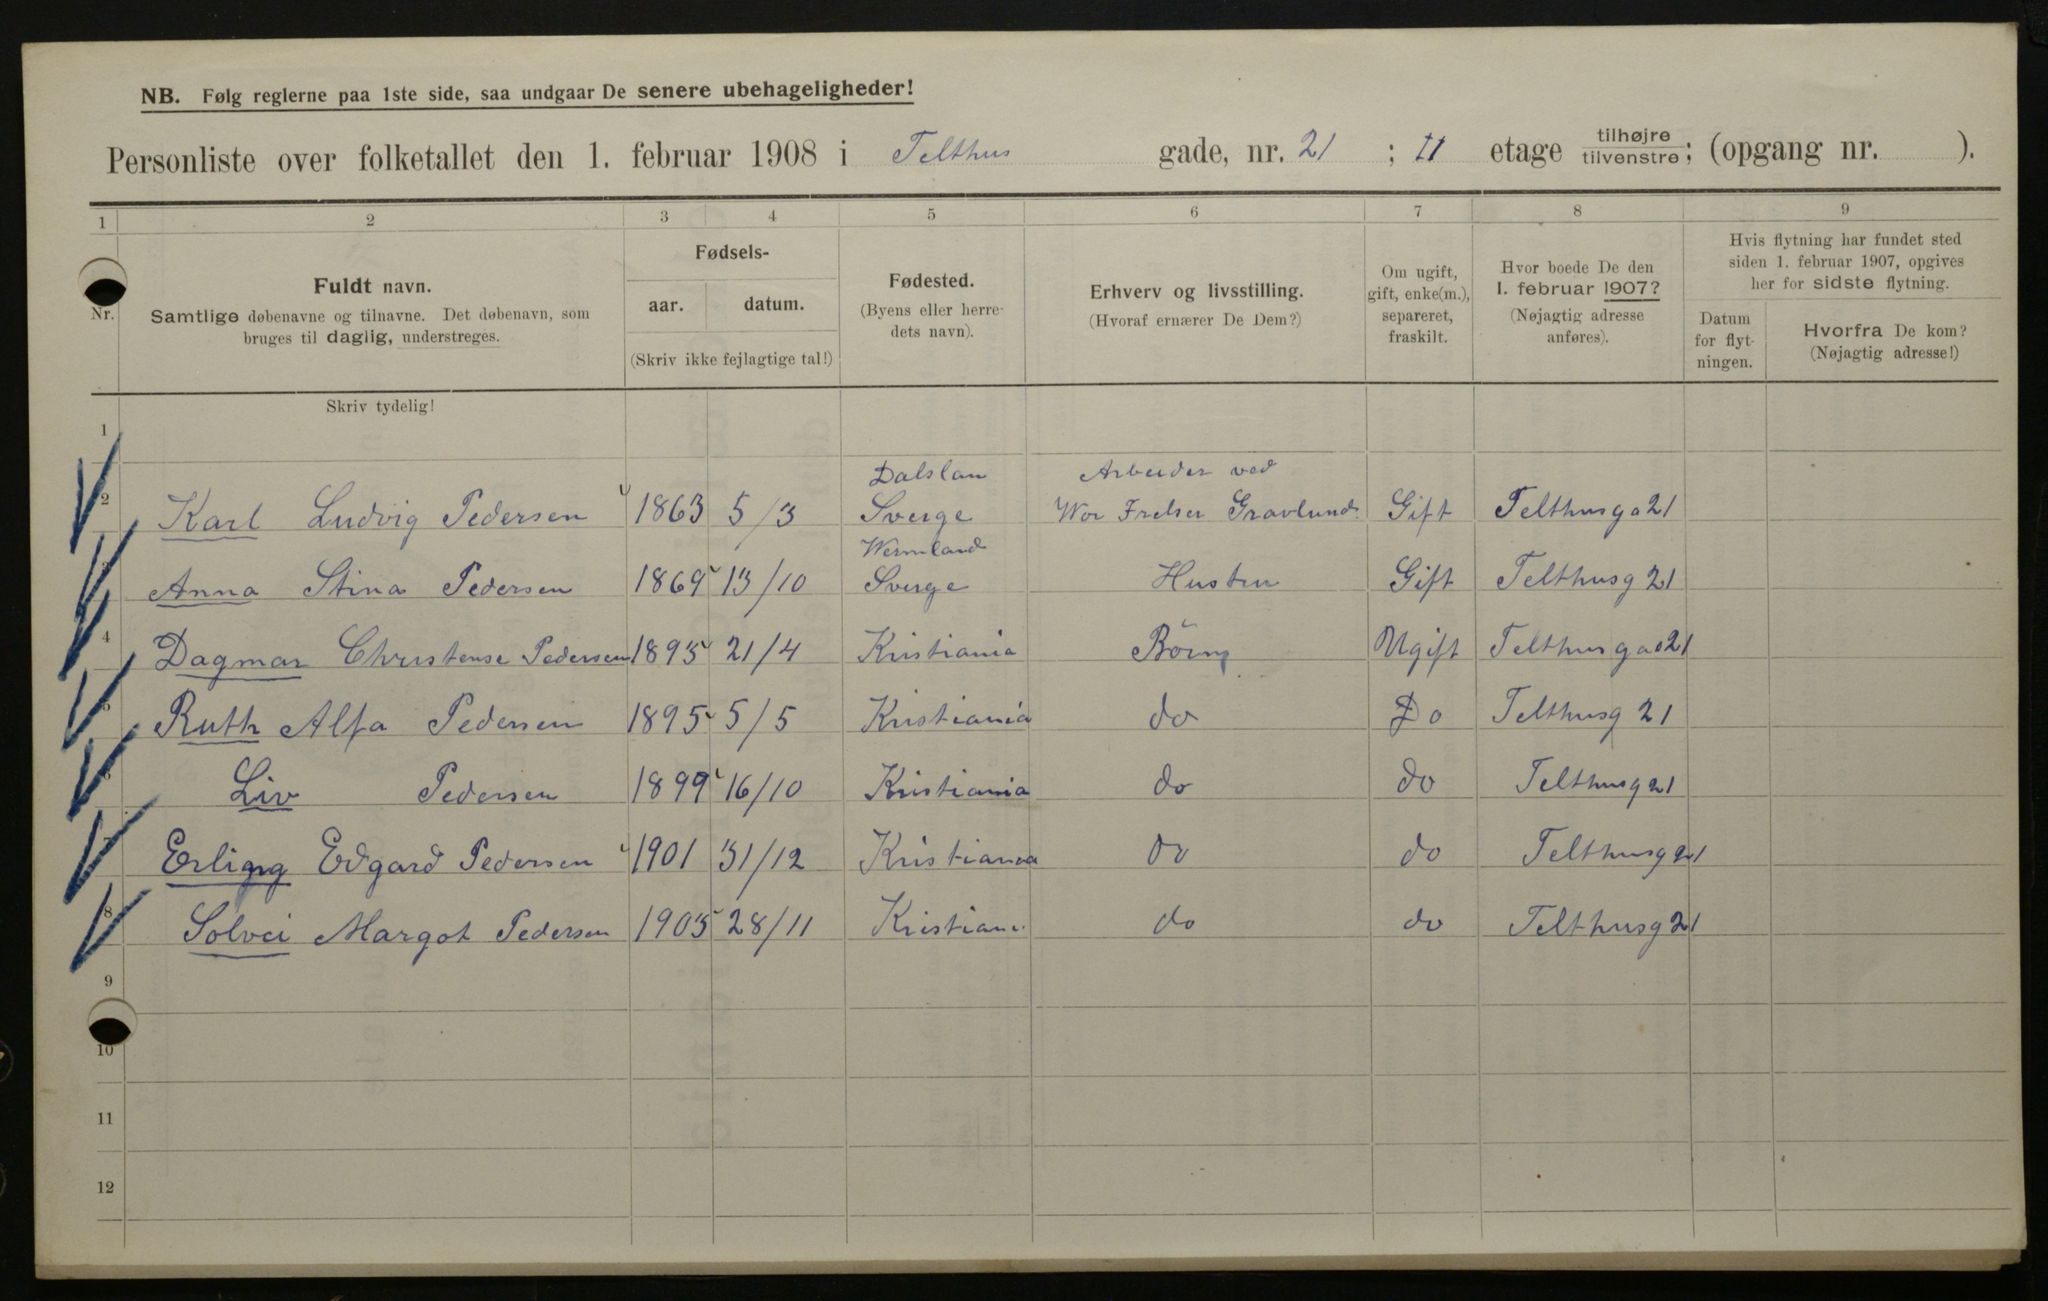 NB. Følg reglerne paa 1ste side, saa undgaar De senere ubehageligheder!
Personliste over folketallet den 1. februar 1908 i Telthus gade, nr. 21 ; II etage tilhøjre/tilvenstre; (opgang nr. ).
1 2 3 4 5 6 7 8 9
Nr.
Fuldt navn.
Samtlige døbenavne og tilnavne. Det døbenavn, som
bruges til daglig, understreges.
Fødsels-
aar. datum.
(Skriv ikke fejlagtige tal!)
Fødested.
(Byens eller herre-
dets navn).
Erhverv og livsstilling.
(Hvoraf ernærer De Dem?)
Om ugift,
gift, enke(m.),
separeret,
fraskilt.
Hvor boede De den
1. februar 1907?
(Nøjagtig adresse
anføres).
Hvis flytning har fundet sted
siden 1. februar 1907, opgives
her for sidste flytning.
Datum
for flyt-
ningen.
Hvorfra De kom?
(Nøjagtig adresse!)
Skriv tydelig!
1
Dalslan Arbeider ved
2 Karl Ludvig Pedersen 1863 5/3 Sverge Wor Frelser Gravlund. Gift Telthusga 21
Wermland
3 Anna Stina Pedersen 1869 13/10 Sverge Hustru Gift Telthusg 21
4 Dagmar Christense Pedersen 1893 21/4 Kristiania Börn Ugift Telthusgad 21
5 Ruth Alfa Pedersen 1895 5/5 Kristiania do Do Telthusg 21
6 Liv Pedersen 1899 16/10 Kristiania do do Telthusg 21
7 Erling Edgard Pedersen 1901 31/12 Kristiania do do Telthusg 21
8 Solvei Margot Pedersen 1905 28/11 Kristiani do do Telthusg 21
9
10
11
12